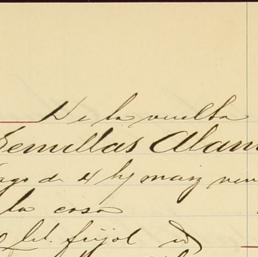 De la vuelta
Semillas Alam
de 4 hg maiz
la casa
lbl. frijol id